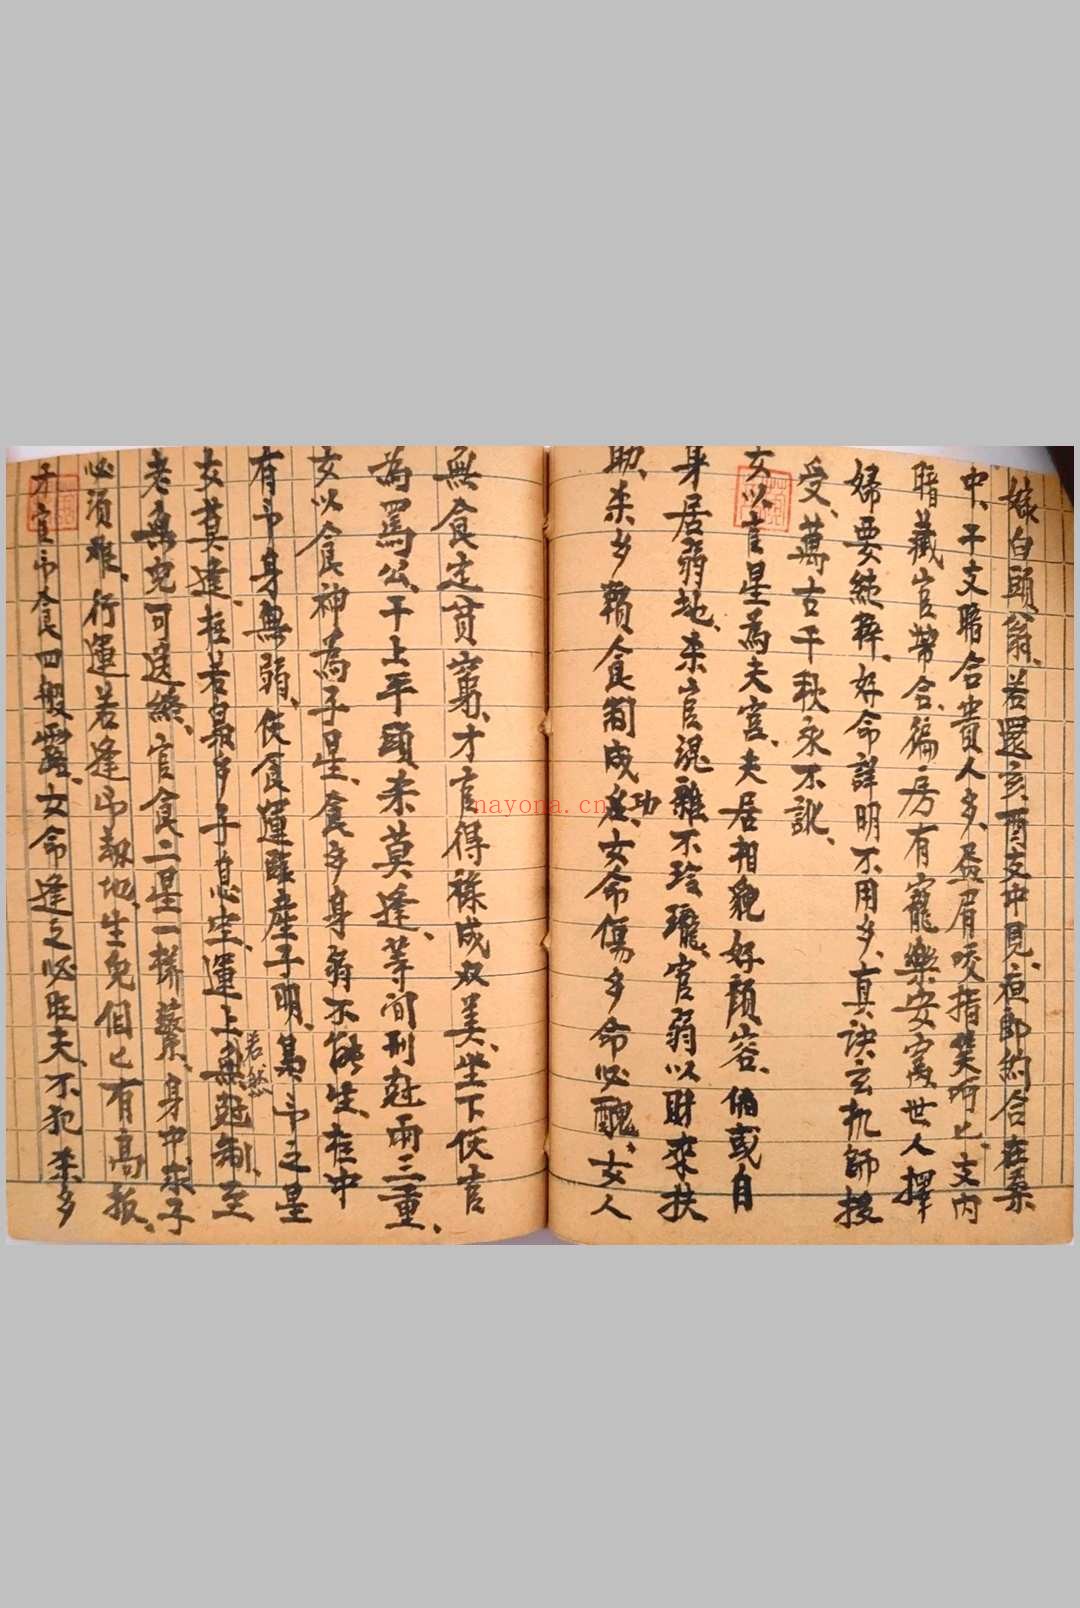 嫁白頭翁、若還亥酉支中見、亘郎約合在桑
中、干支暗合貴人多、昼眉咬指笑呵匕、支内
暗藏官帶合、偏房有寵樂安寓、世人擇
婦要純粹、好命詳明不用多、真訣玄机師授
受、萬古千秋永不訛、
女以官星為夫宮、夫居相貌好顏容、倘或自
身居弱地、杀官混雜不玲瓏、官弱以財來扶
助、杀多賴食制成功、女命傷多命必醜、女人
無食定貧窮、才官得祿成双美、坐下伕官
為罵公、干上平頭杀莫逢、等间刑尅兩三重、
女以食神為子星、食多身弱不能生、柱中
有卩身無弱、伕食運臨產子明、萬卩之星
女莫逢、柱若梟多子息空、運上若然無尅制、至
老無兒可送終、官食二星一樣蔡、身中求子
必須难、行運若逢卩刼地、生兒個匕有高扳、
才官卩食四般露、女命逢之必旺夫、不犯杀多
nayona.cn